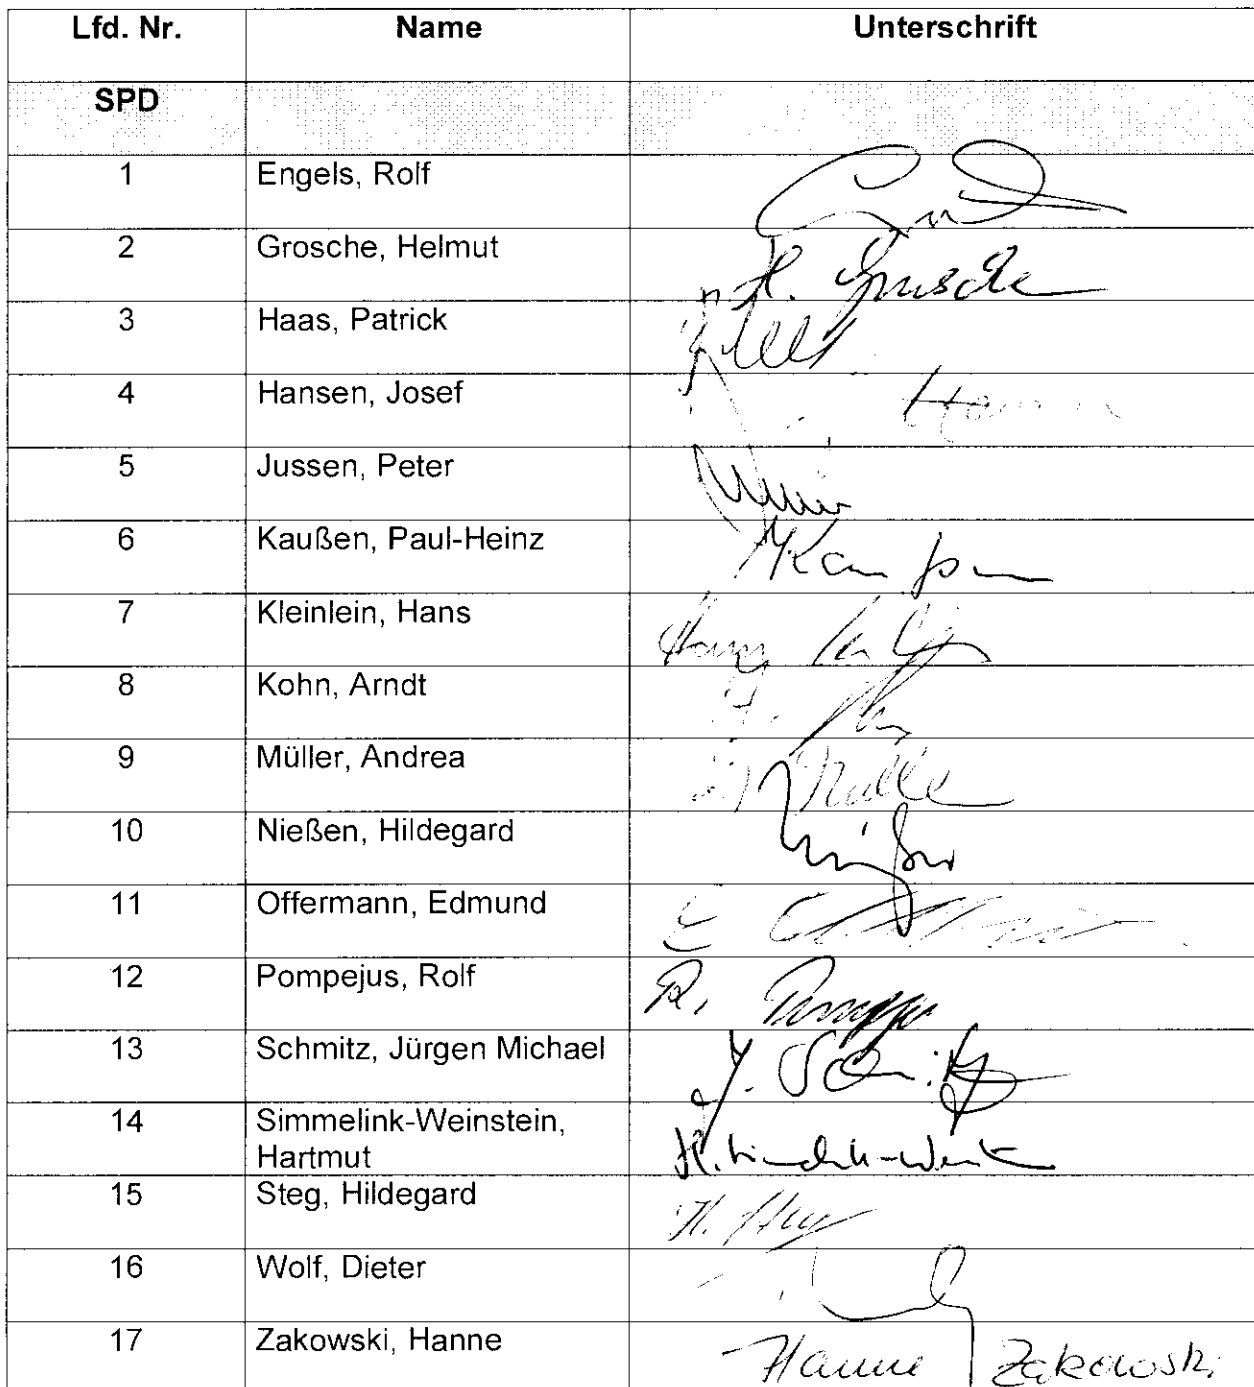 Lfd. Nr. Name Unterschrift
SPD
1 Engels, Rolf
2 Grosche, Helmut H. Grosche
3 Haas, Patrick
4 Hansen, Josef
5 Jussen, Peter
6 Kaußen, Paul-Heinz
7 Kleinlein, Hans Hans
8 Kohn, Arndt
9 Müller, Andrea
10 Nießen, Hildegard
11 Offermann, Edmund E
12 Pompejus, Rolf R.
13 Schmitz, Jürgen Michael J. Schmitz
14 Simmelink-Weinstein,
Hartmut
15 Steg, Hildegard H. Steg
16 Wolf, Dieter
17 Zakowski, Hanne Hanne Zakowski